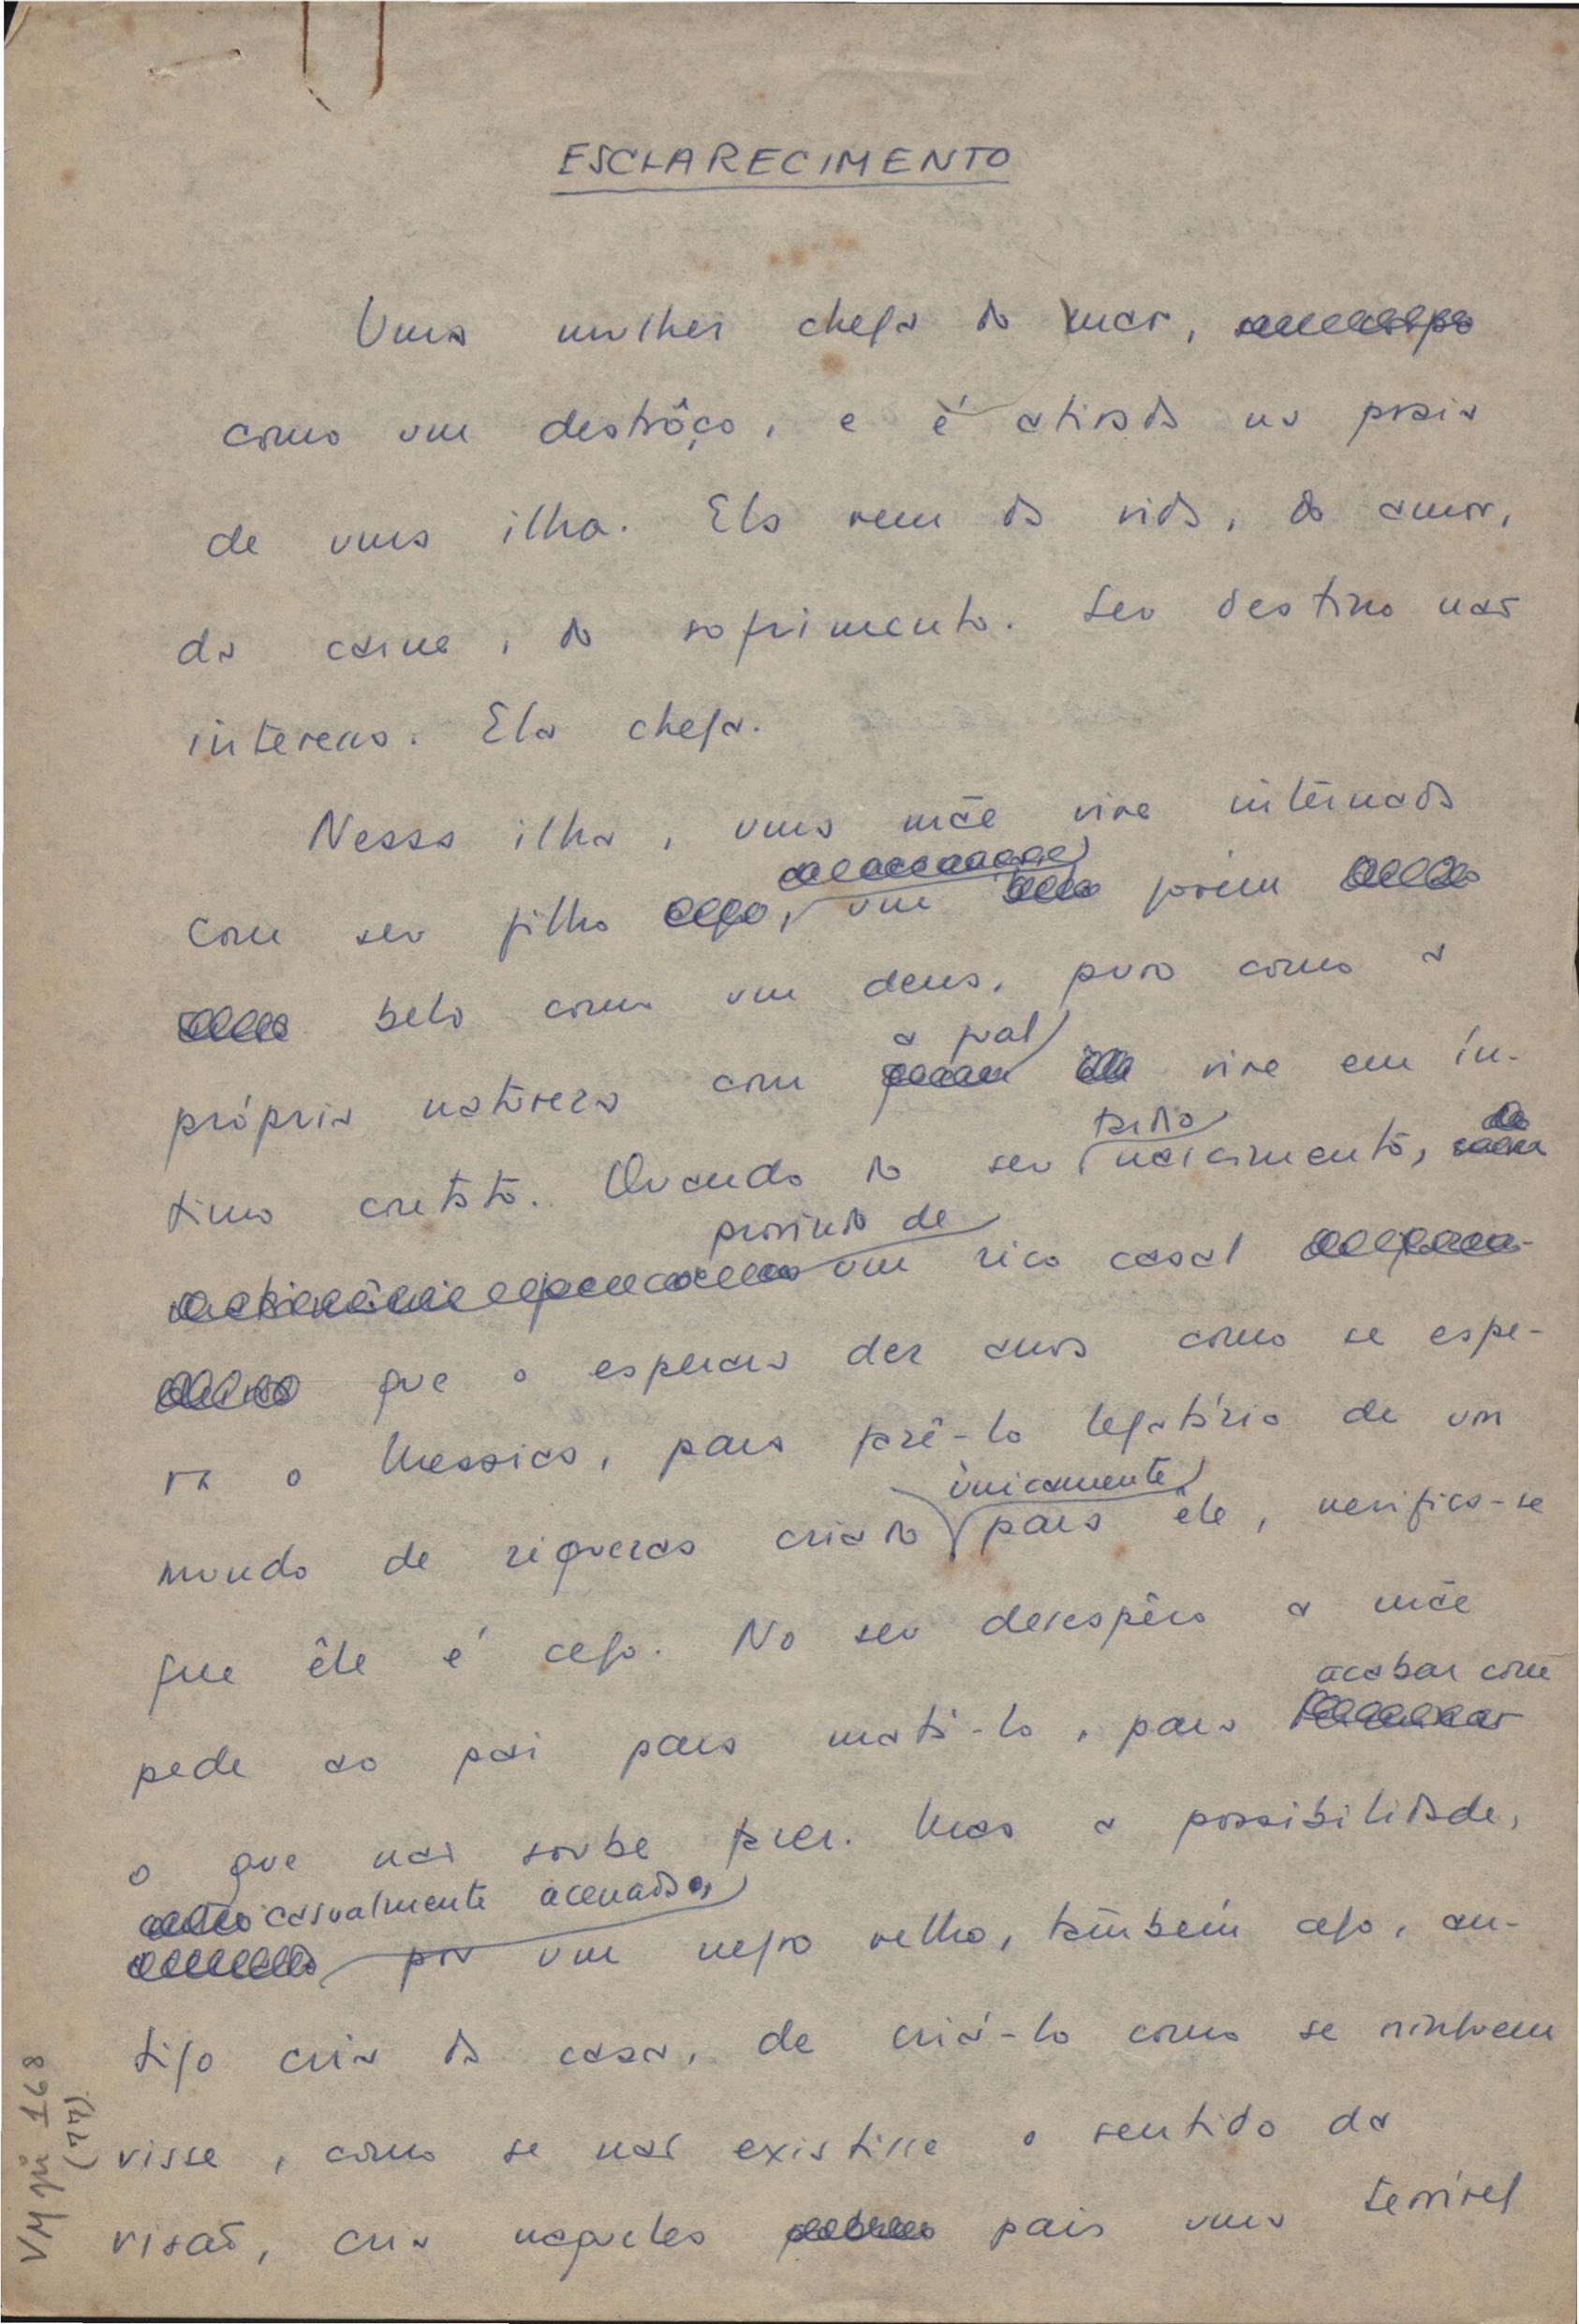 ESCLARECIMENTO
Uma mulher chega do mar,
como um destrôço, e é atirada na praia
de uma ilha. Ela vem da vida, do amor,
da carne, do sofrimento. Seu destino não
interessa. Ela chega.
Nessa ilha, uma mãe vive internada
com seu filho cego, um jovem
belo como um deus, puro como a
a qual
própria natureza com vive em ín-
tardio
timo contato. Quando do seu nascimento, de
provindo de
um rico casal
que o esperara dez anos como se espe-
ra o Messias, para fazê-lo legatário de um
ùnicamente
mundo de riquezas criado para êle, verifica-se
que êle é cego. No seu desespêro a mãe
acabar com
pede ao pai para matá-lo, para
o que não soube fazer. Mas a possibilidade,
casualmente acenada,
por um negro velho, também cego, an-
tigo cria da casa, de criá-lo como se ninguém
visse, como se não existisse o sentido da
visão, cria naqueles pais uma terrível
VM pi 168
(77)